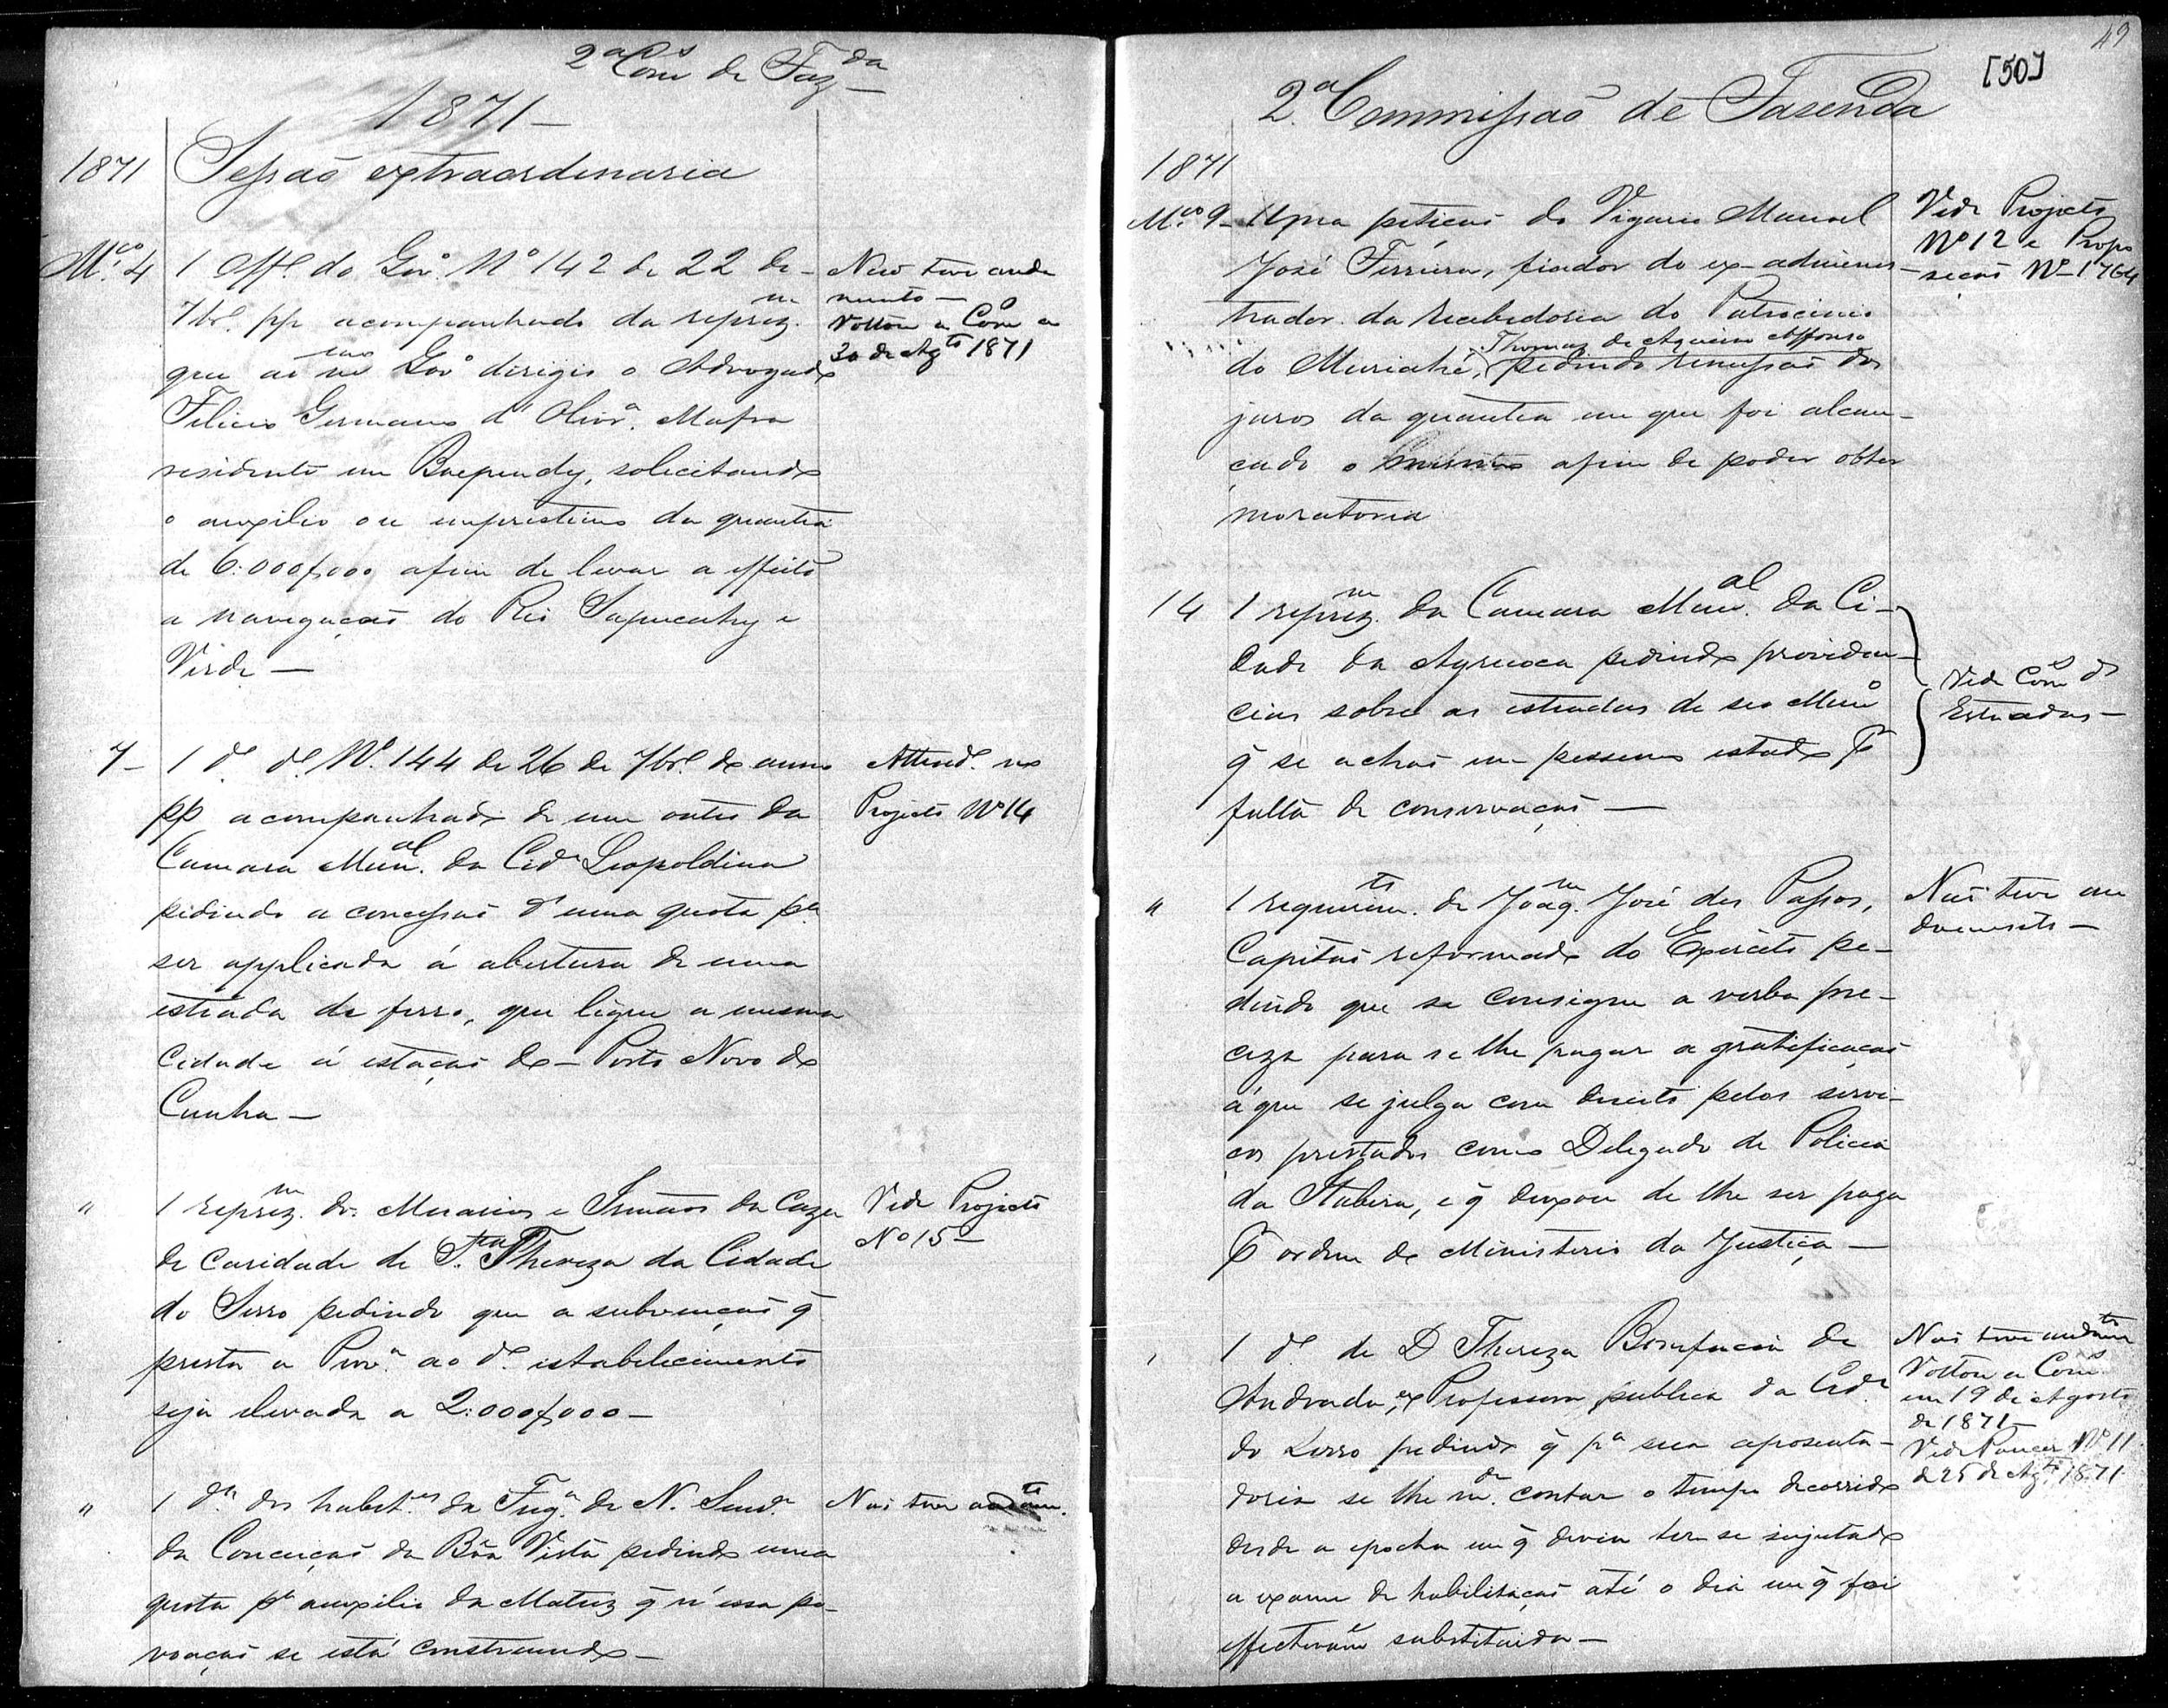 2ª Comᵐ de Fazᵈᵃ
1871—
1871 Sessão extraordinaria
Mᶜᵒ 4 1 Off.º do Govº Nº 142 de 22 de
7brº pp acompanhado da reprezᵐ
que ao mᵐᵒ Govº dirigio o Advogado
Felicio Germano d'Olivrª Mafra
residente em Baependy, solicitando
o auxilio ou emprestimo da quantia
de 6:000$000 afim de levar a effeito
a navegação do Rio Sapucahy e
Verde—
Não teve anda
mento—
Voltou a Comᵒ a
30 de Agᵗᵒ 1871
7— 1 dº dº Nº 144 de 26 de 7brº do anno
pp acompanhado de um outro da
Camara Munᵃˡ da Cidᵉ Leopoldina
pedindo a concessão d'uma quota pª
ser applicada á abertura de uma
estrada de ferro, que ligue a mesma
Cidade á estação do—Porto Novo do
Cunha—
Attendº no
Projecto Nº 14
" 1 reprezᵐ do Mezarios e Irmãos da Caza
de Caridade de Sᵗᵃ Thereza da Cidade
do Serro pedindo que a subvenção q̃
presta a Provª ao dº estabelecimento
seja elevada a 2:000$000—
Vide Projecto
Nº 15—
" 1 dª dos habitᵉˢ da Fregª de N. Senrª
da Conceição da Bôa Vista pedindo uma
quota pª auxilio da Matriz q̃ n'essa po-
voação se está construindo—
Não teve andamᵗᵒ.
49
[50]
2ª Commissão de Fasenda
1871
Mᶜᵒ 9— Uma petição do Vigario Manoel
José Ferreira, fiador do ex-adminis-
trador da recebedoria do Patrocinio
do Muriahé, Thomaz de Aquino Affonso pedindo remissão dos
juros da quantia em que foi alcan-
çado o mesmo afim de poder obter
moratoria
Vide Projecto
Nº 12 e Propo
sição Nº 1764
14 1 reprezᵐ da Camara Munᵃˡ da Ci-
dade da Ayuruoca pedindo providen-
cias sobre as estradas de seo Munº
q̃ se achão em pessimo estado p̃
falta de conservação—
Vide Comᵒ de
Estradas—
" 1 requerimᵗᵒ de Joaqᵐ José dos Passos,
Capitão reformado do Exercito pe-
dindo que se consigne a verba pre-
ciza para se lhe pagar a gratificação
á que se julga com direito pelos servi-
ços prestados como Delegado de Policia
da Itabira, e q̃ deixou de lhe ser paga
p̃ ordem do Ministerio da Justiça—
Não teve an
damento—
, 1 dº de D Thereza Bonifacia de
Andrade, ex Professora publica da Cidᵉ
do Serro pedindo q̃ pª sua aposenta-
doria se lhe mᵈᵉ contar o tempo decorrido
desde a epocha em q̃ devia ter se sujeitado
a exame de habilitação até o dia em q̃ foi
effectivamᵉ substituida—
Não teve andamᵗᵒ
Voltou a Comᵒ
em 19 de Agosto
de 1871—
Vide Parecer Nº 11
de 25 de Agᵗᵒ 1871